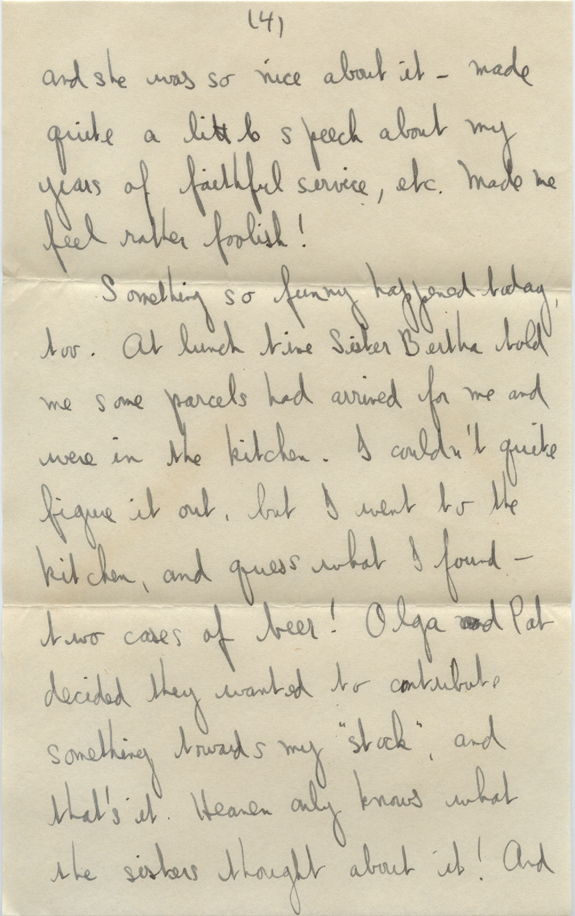 (4)
and she was so nice about it - made
quite a little speech about my
years of faithful service, etc. Made me
feel rather foolish!
Something so funny happened today,
too. At lunch time Sister Bertha told
me some parcels had arrived for me and
were in the kitchen. I couldn't quite
figure it out, but I went to the
kitchen, and guess what I found -
two cases of beer! Olga and Pat
decided they wanted to contribute
something towards my "stock", and
that's it. Heaven only knows what
the sisters thought about it! And